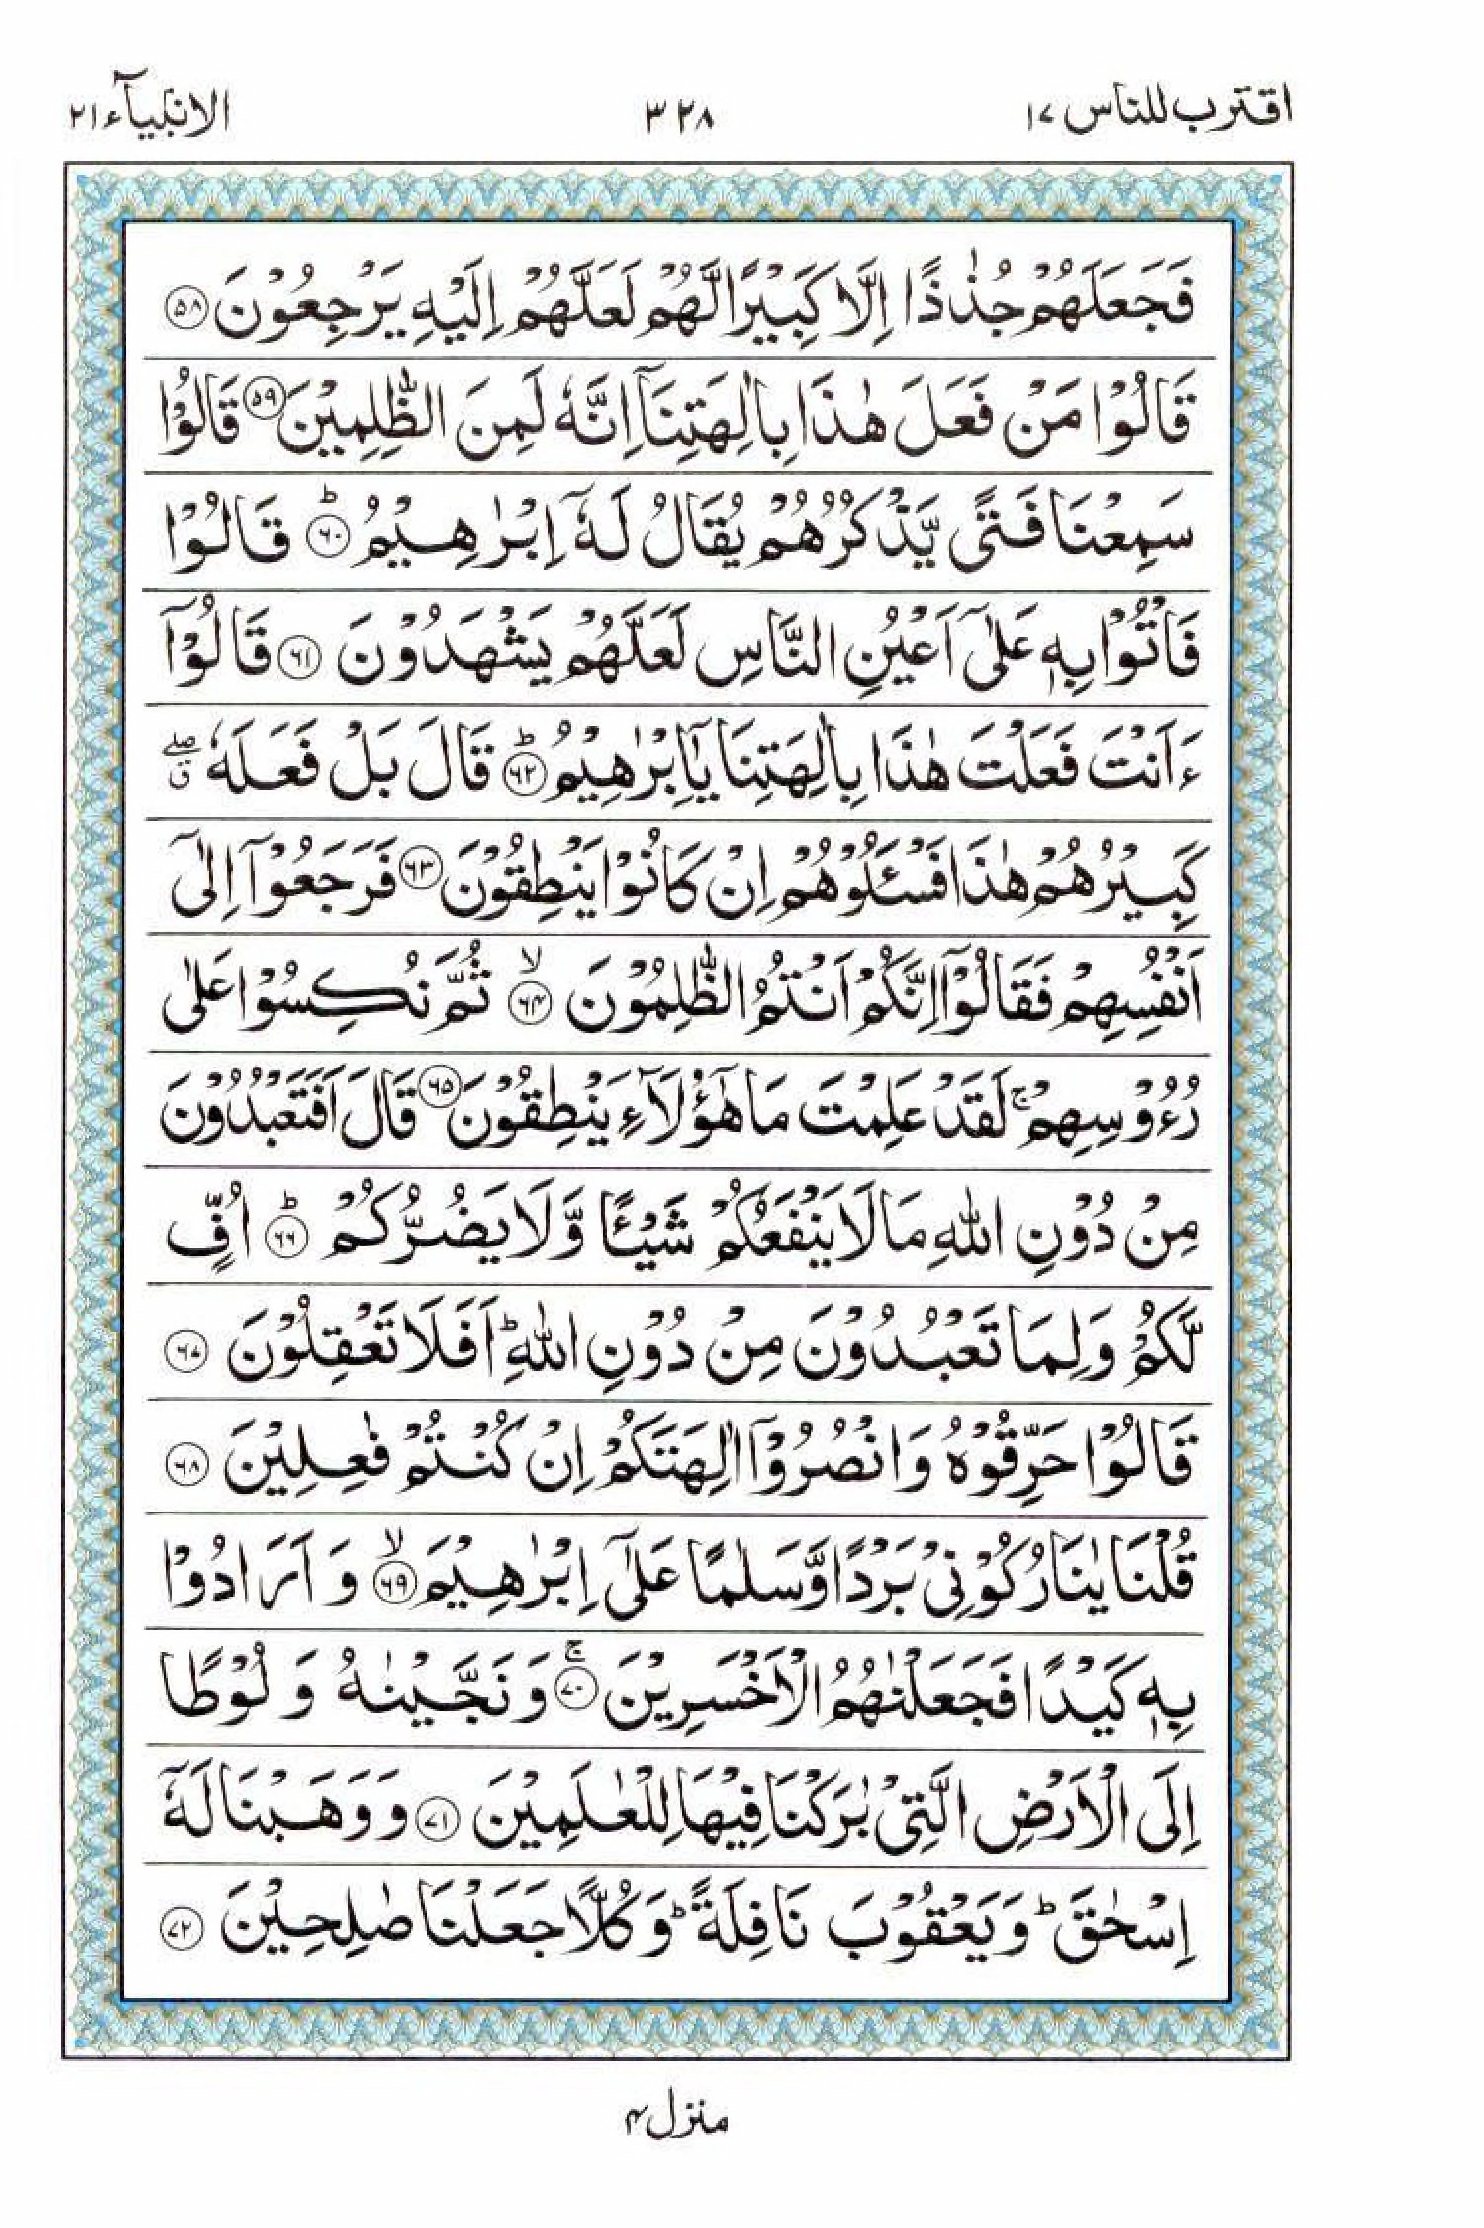 اقترب للناس ۱۷
۳۲۸
الانبیآء ۲۱
فَجَعَلَهُمْ جُذٰذًا اِلَّا كَبِيْرًا لَّهُمْ لَعَلَّهُمْ اِلَيْهِ يَرْجِعُوْنَ ۝۵۸
قَالُوْا مَنْ فَعَلَ هٰذَا بِاٰلِهَتِنَاۤ اِنَّهٗ لَمِنَ الظّٰلِمِيْنَ ۝۵۹ قَالُوْا
سَمِعْنَا فَتًى يَّذْكُرُهُمْ يُقَالُ لَهٗۤ اِبْرٰهِيْمُ ؕ۝۶۰ قَالُوْا
فَاْتُوْا بِهٖ عَلٰۤى اَعْيُنِ النَّاسِ لَعَلَّهُمْ يَشْهَدُوْنَ ۝۶۱ قَالُوْۤا
ءَاَنْتَ فَعَلْتَ هٰذَا بِاٰلِهَتِنَا يٰۤاِبْرٰهِيْمُ ؕ۝۶۲ قَالَ بَلْ فَعَلَهٗ ۖق
كَبِيْرُهُمْ هٰذَا فَسْـَٔلُوْهُمْ اِنْ كَانُوْا يَنْطِقُوْنَ ۝۶۳ فَرَجَعُوْۤا اِلٰۤى
اَنْفُسِهِمْ فَقَالُوْۤا اِنَّكُمْ اَنْتُمُ الظّٰلِمُوْنَ ۙ۝۶۴ ثُمَّ نُكِسُوْا عَلٰى
رُءُوْسِهِمْ ۚ لَقَدْ عَلِمْتَ مَا هٰۤؤُلَآءِ يَنْطِقُوْنَ ۝۶۵ قَالَ اَفَتَعْبُدُوْنَ
مِنْ دُوْنِ اللّٰهِ مَا لَا يَنْفَعُكُمْ شَيْـًٔا وَّلَا يَضُرُّكُمْ ؕ۝۶۶ اُفٍّ
لَّكُمْ وَلِمَا تَعْبُدُوْنَ مِنْ دُوْنِ اللّٰهِ ؕ اَفَلَا تَعْقِلُوْنَ ۝۶۷
قَالُوْا حَرِّقُوْهُ وَانْصُرُوْۤا اٰلِهَتَكُمْ اِنْ كُنْتُمْ فٰعِلِيْنَ ۝۶۸
قُلْنَا يٰنَارُ كُوْنِيْ بَرْدًا وَّسَلٰمًا عَلٰۤى اِبْرٰهِيْمَ ۙ۝۶۹ وَاَرَادُوْا
بِهٖ كَيْدًا فَجَعَلْنٰهُمُ الْاَخْسَرِيْنَ ۚ۝۷۰ وَنَجَّيْنٰهُ وَلُوْطًا
اِلَى الْاَرْضِ الَّتِيْ بٰرَكْنَا فِيْهَا لِلْعٰلَمِيْنَ ۝۷۱ وَوَهَبْنَا لَهٗۤ
اِسْحٰقَ ؕ وَيَعْقُوْبَ نَافِلَةً ؕ وَكُلًّا جَعَلْنَا صٰلِحِيْنَ ۝۷۲
منزل ۴